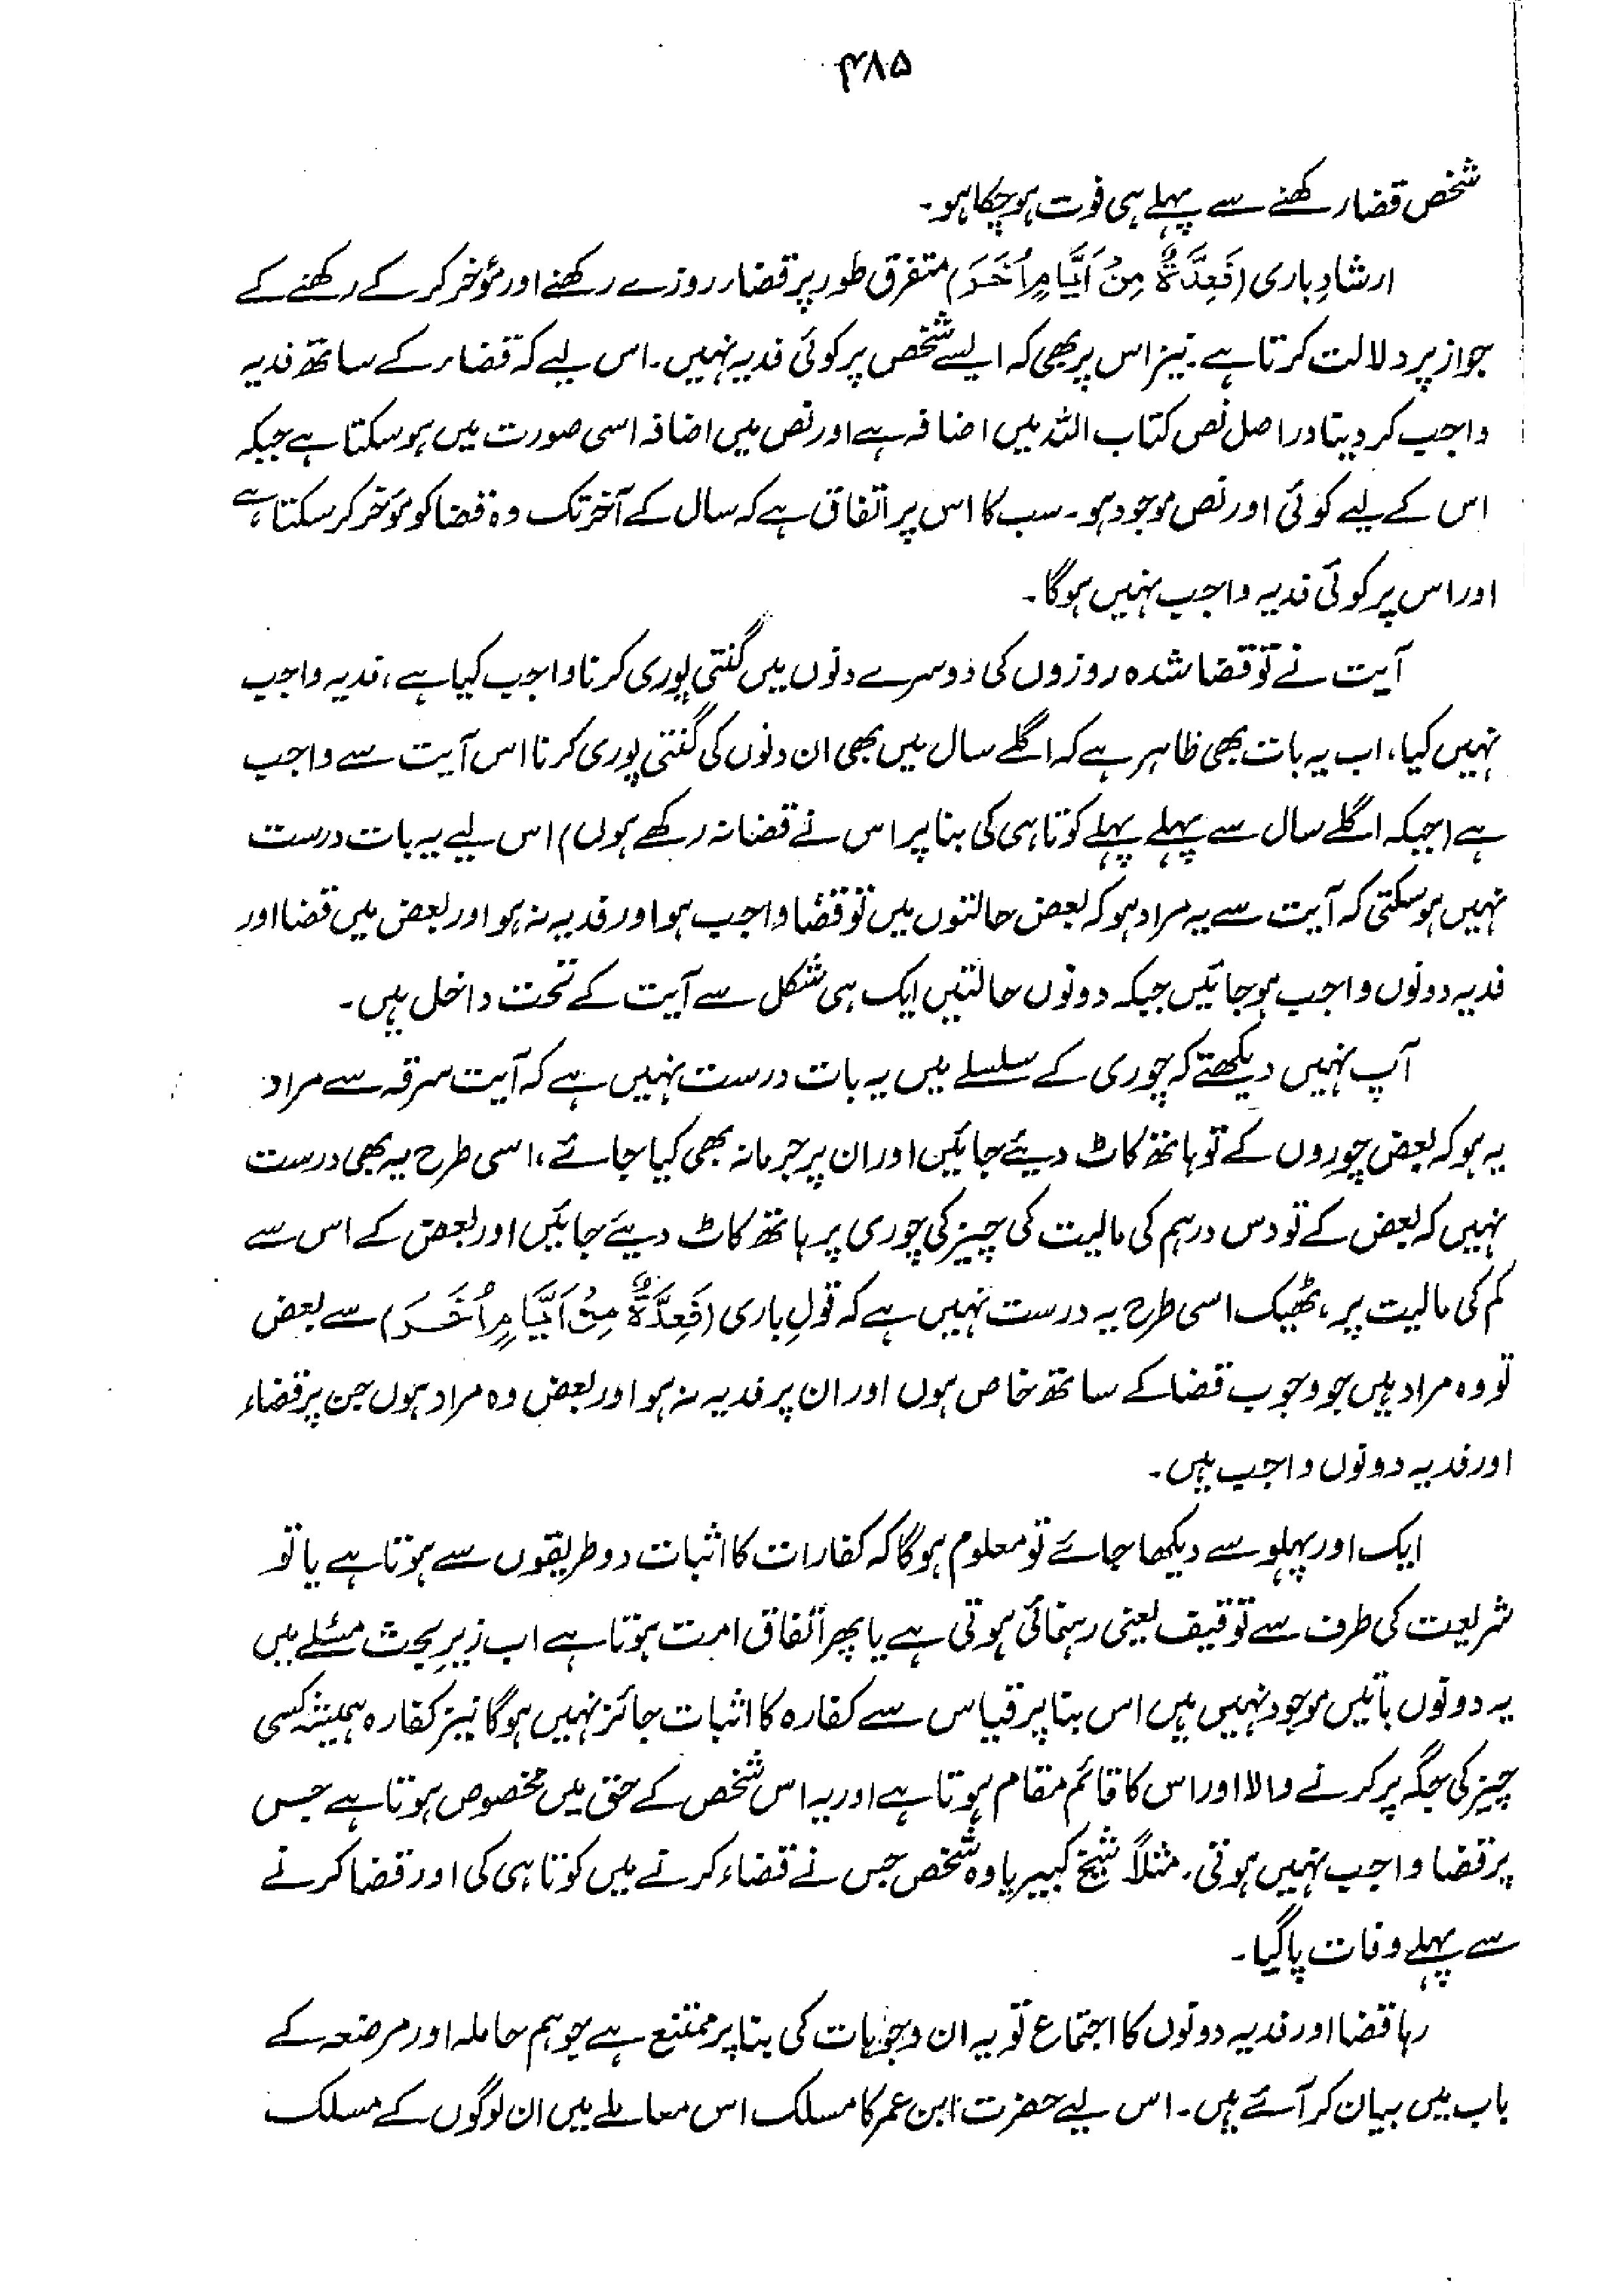 ۴۸۵
شخص قضا رکھنے سے پہلے ہی فوت ہو چکا ہو۔
ارشادِ باری (فَعِدَّةٌ مِنْ اَيَّامٍ اُخَرَ) متفرق طور پر قضاء روزے رکھنے اور مؤخر کر کے رکھنے کے
جواز پر دلالت کرتا ہے۔ نیز اس پر بھی کہ ایسے شخص پر کوئی فدیہ نہیں۔ اس لیے کہ قضاء کے ساتھ فدیہ
واجب کر دینا دراصل نص کتاب اللہ میں اضافہ ہے اور نص میں اضافہ اسی صورت میں ہو سکتا ہے جبکہ
اس کے لیے کوئی اور نص موجود ہو۔ سب کا اس پر اتفاق ہے کہ سال کے آخر تک وہ قضا کو مؤخر کر سکتا ہے
اور اس پر کوئی فدیہ واجب نہیں ہوگا۔
آیت نے تو قضا شدہ روزوں کی دوسرے دنوں میں گنتی پوری کرنا واجب کیا ہے، فدیہ واجب
نہیں کیا، اب یہ بات بھی ظاہر ہے کہ اگلے سال میں بھی ان دنوں کی گنتی پوری کرنا اس آیت سے واجب
ہے (جبکہ اگلے سال سے پہلے پہلے کوتاہی کی بنا پر اس نے قضا نہ رکھے ہوں) اس لیے یہ بات درست
نہیں ہو سکتی کہ آیت سے یہ مراد ہو کہ بعض حالتوں میں تو قضا واجب ہو اور فدیہ نہ ہو اور بعض میں قضا اور
فدیہ دونوں واجب ہو جائیں جبکہ دونوں حالتیں ایک ہی شکل سے آیت کے تحت داخل ہیں۔
آپ نہیں دیکھتے کہ چوری کے سلسلے میں یہ بات درست نہیں ہے کہ آیت سرقہ سے مراد
یہ ہو کہ بعض چوروں کے تو ہاتھ کاٹ دیئے جائیں اور ان پر جرمانہ بھی کیا جائے، اسی طرح یہ بھی درست
نہیں کہ بعض کے تو دس درہم کی مالیت کی چیز کی چوری پر ہاتھ کاٹ دیئے جائیں اور بعض کے اس سے
کم کی مالیت پر، ٹھیک اسی طرح یہ درست نہیں ہے کہ قولِ باری (فَعِدَّةٌ مِنْ اَيَّامٍ اُخَرَ) سے بعض
تو وہ مراد ہیں جو وجوب قضا کے ساتھ خاص ہوں اور ان پر فدیہ نہ ہو اور بعض وہ مراد ہوں جن پر قضاء
اور فدیہ دونوں واجب ہیں۔
ایک اور پہلو سے دیکھا جائے تو معلوم ہوگا کہ کفارات کا اثبات دو طریقوں سے ہوتا ہے یا تو
شریعت کی طرف سے توقیف یعنی رہنمائی ہوتی ہے یا پھر اتفاق امت ہوتا ہے اب زیرِ بحث مسئلے میں
یہ دونوں باتیں موجود نہیں ہیں اس بنا پر قیاس سے کفارہ کا اثبات جائز نہیں ہوگا نیز کفارہ ہمیشہ کسی
چیز کی جگہ پر کرنے والا اور اس کا قائم مقام ہوتا ہے اور یہ اس شخص کے حق میں مخصوص ہوتا ہے جس
پر قضا واجب نہیں ہوتی۔ مثلاً شیخ کبیر یا وہ شخص جس نے قضاء کرنے میں کوتاہی کی اور قضا کرنے
سے پہلے وفات پا گیا۔
رہا قضا اور فدیہ دونوں کا اجتماع تو یہ ان وجوہات کی بنا پر ممتنع ہے جو ہم حاملہ اور مرضعہ کے
باب میں بیان کر آئے ہیں۔ اس لیے حضرت ابن عمر کا مسلک اس معاملے میں ان لوگوں کے مسلک